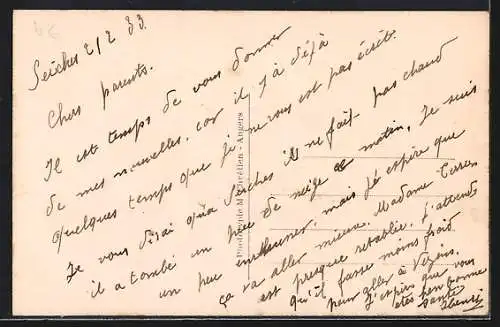 Seiches 2/2 33.
Chers parents.
Il est temps de vous donner
de mes nouvelles, car il y a déjà
quelques temps que je ne vous est pas écrit.
Je vous dirai qu'à Seiches il ne fait pas chaud
il a tombé un peu de neige ce matin, Je suis
un peu mais j'éspire que
ça va aller mieux. Madame
est presque retablie. J'attends
qu'il fasse moins froid
pour aller à Vezins.
J'espire que vous
etes en bonne
santé
Phototypie M. Angers